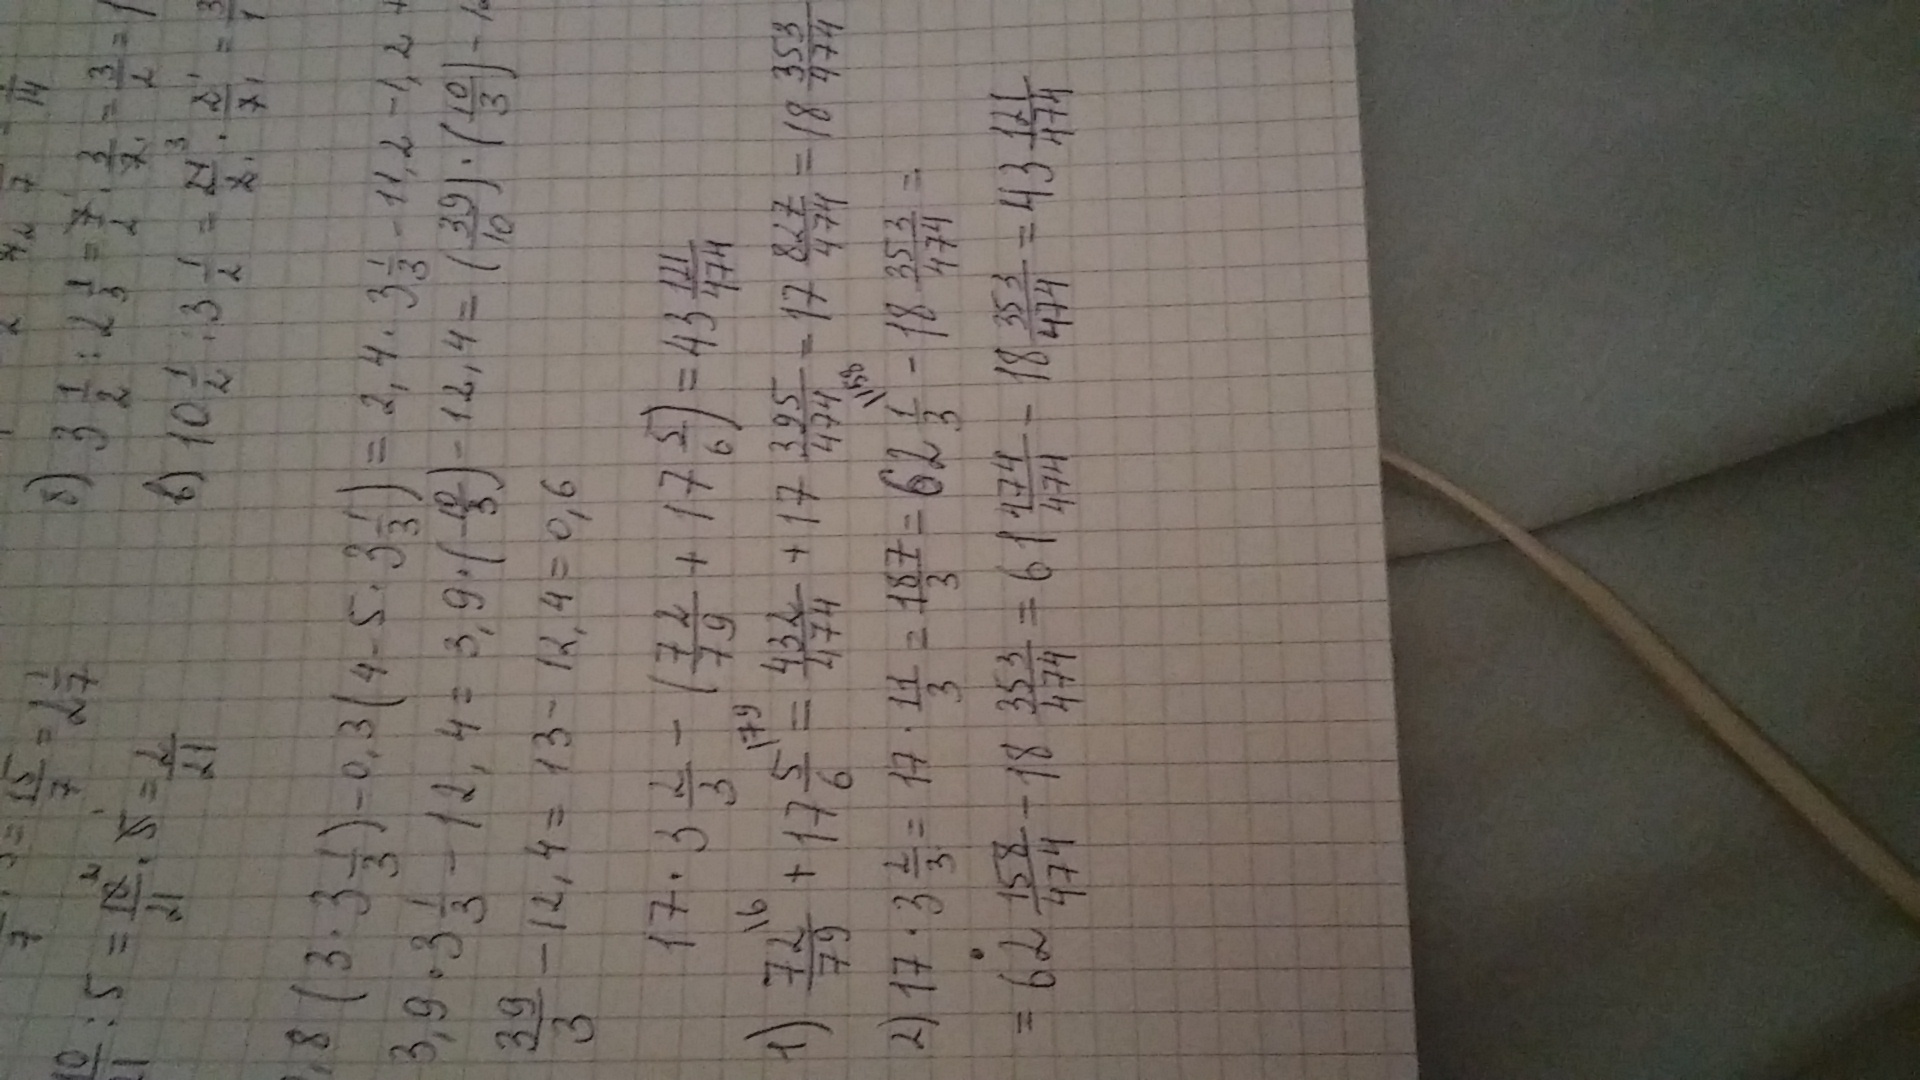 = 15/7 = 2 1/7
/21 : 5 = 10/21 · 5 = 2/21
б) 3 1/2 : 2 1/3 = 7/2 · 3/7 = 3/2 = 1
в) 10 1/2 : 3 1/2 = 21/2 · 2/7 = 3/1
,8 (3 · 3 1/3) - 0,3 (4 - 5 · 3 1/3) = 2,4 · 3 1/3 - 11,2 - 1,2 +
3,9 · 3 1/3 - 12,4 = 3,9 · (10/3) - 12,4 = (39/10) · (10/3) - 1
39/3 - 12,4 = 13 - 12,4 = 0,6
17 · 3 2/3 - (72/79 + 17 5/6) = 43 121/474
1) 72/79 \6 + 17 5/6 \79 = 432/474 + 17 395/474 = 17 827/474 = 18 353/474
2) 17 · 3 2/3 = 17 · 11/3 = 187/3 = 62 1/3 \158 - 18 353/474 =
= 62 158/474 - 18 353/474 = 61 474/474 - 18 353/474 = 43 121/474